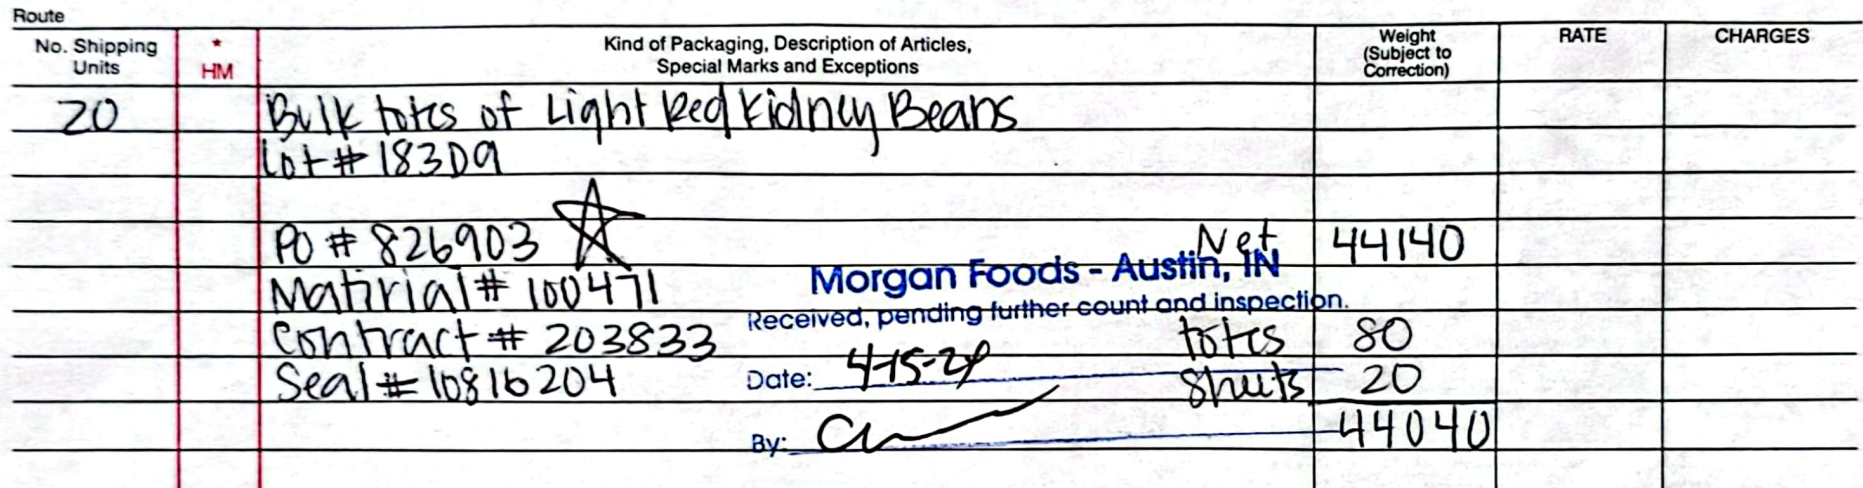 Route
No. Shipping Units
* HM
Kind of Packaging, Description of Articles,
Special Marks and Exceptions
Weight
(Subject to
Correction)
RATE
CHARGES
20 Bulk totes of Light Red Kidney Beans
Lot # 183D9
PO # 826903 Net 44140
Matirial # 100471
Morgan Foods - Austin, IN
Received, pending further count and inspection.
Contract # 203833 totes 80
Seal # 10816204 Date: 4-15-24 Shuts 20
By: 44040